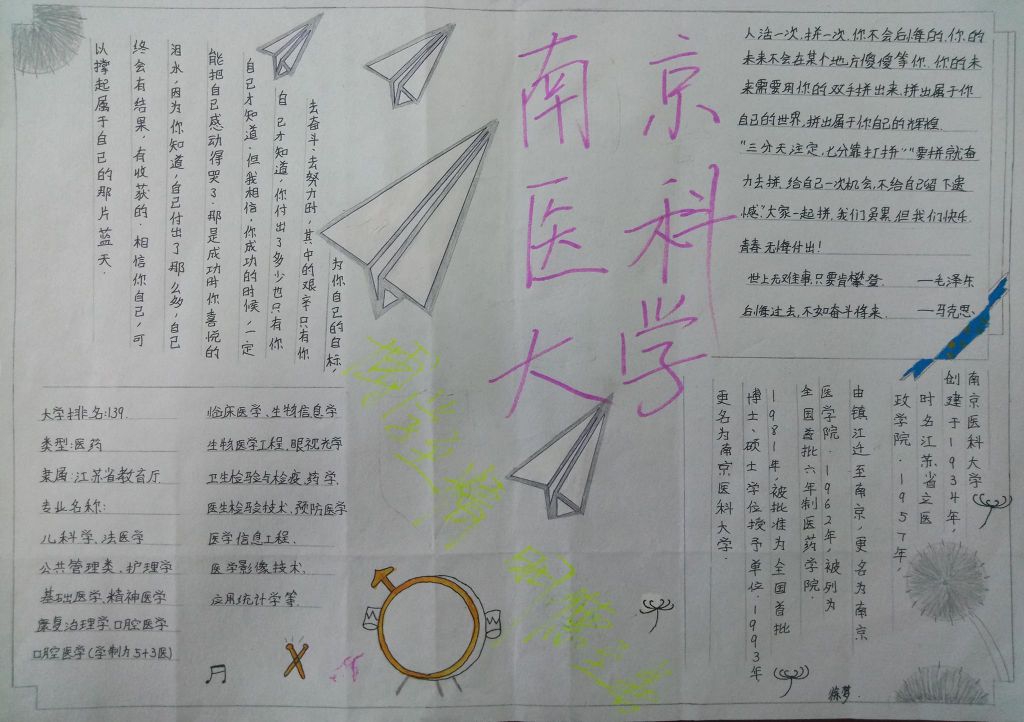 南京
医科
大学
为你自己的目标，
去奋斗、去努力时，其中的艰辛只有你
自己才知道，你付出了多少也只有你
自己才知道。但我相信，你成功的时候，一定
能把自己感动得哭了。那是成功时你喜悦的
泪水，因为你知道，自己付出了那么多，自己
终会有结果，有收获的。相信你自己，可
以撑起属于自己的那片蓝天.
人活一次，拼一次，你不会后悔的，你的
未来不会在某个地方傻傻等你，你的未
来需要用你的双手拼出来，拼出属于你
自己的世界，拼出属于你自己的辉煌.
"三分天注定，七分靠打拼""要拼就奋
力去拼，给自己一次机会，不给自己留下遗
憾."大家一起拼，我们虽累，但我们快乐.
青春无悔付出！
世上无难事，只要肯攀登. ——毛泽东
后悔过去，不如奋斗将来. ——马克思、
大学排名：139.
类型：医药
隶属：江苏省教育厅
专业名称：
儿科学、法医学
公共管理类、护理学
基础医学、精神医学
康复治理学 口腔医学
口腔医学(学制为5+3医)
临床医学、生物信息学
生物医学工程、眼视光学
卫生检验与检疫、药学、
医生检验技术、预防医学
医学信息工程、
医学影像技术、
应用统计学等.
南京医科大学
创建于1934年，
时名江苏省立医
政学院.1957年，
由镇江迁至南京，更名为南京
医学院.1962年，被列为
全国首批六年制医药学院.
1981年，被批准为全国首批
博士、硕士学位授予单位.1993年
更名为南京医科大学.